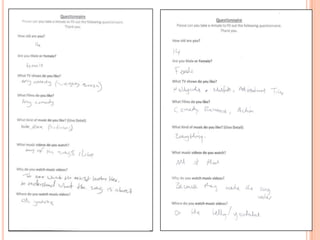 Questionnaire
Please can you take a minute to fill out the following questionnaire.
Thank you.
How old are you?
Are you Male or Female?
What TV shows do you like?
Any comedy
What films do you like?
Any comedy
What kind of music do you like? (Give Detail)
What music videos do you watch?
any of the songs I like
Why do you watch music videos?
To see what the artist looks like,
to understand what the song is about
Where do you watch music videos?
On youtube
Questionnaire
Please can you take a minute to fill out the following questionnaire.
Thank you.
How old are you?
14
Are you Male or Female?
Female
What TV shows do you like?
Hollyoaks, Misfits, Adventure Time
What films do you like?
Comedy, Action
What kind of music do you like? (Give Detail)
Everything.
What music videos do you watch?
All of that
Why do you watch music videos?
Because they make the song
Where do you watch music videos?
On the telly/youtube